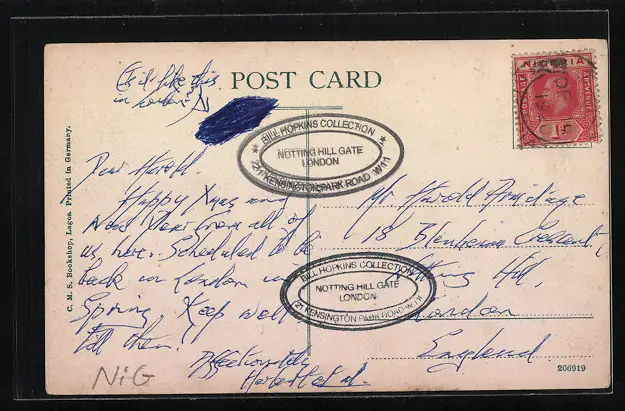 (Is it like this
in London?)
POST CARD
NIGERIA
POSTAGE
REVENUE
1d
DE
BILL HOPKINS COLLECTION
NOTTING HILL GATE
LONDON
221 KENSINGTON PARK ROAD W11
Dear Harold.
Happy Xmas and
New Year from all of
us here. Scheduled to be
back in London in
Spring. Keep well
till then.
Affectionately
Mr Harold Armitage
18 Blenheim Crescent,
Notting Hill,
London
England
BILL HOPKINS COLLECTION
NOTTING HILL GATE
LONDON
221 KENSINGTON PARK ROAD W11
C. M. S. Bookshop, Lagos. Printed in Germany.
NiG
206919